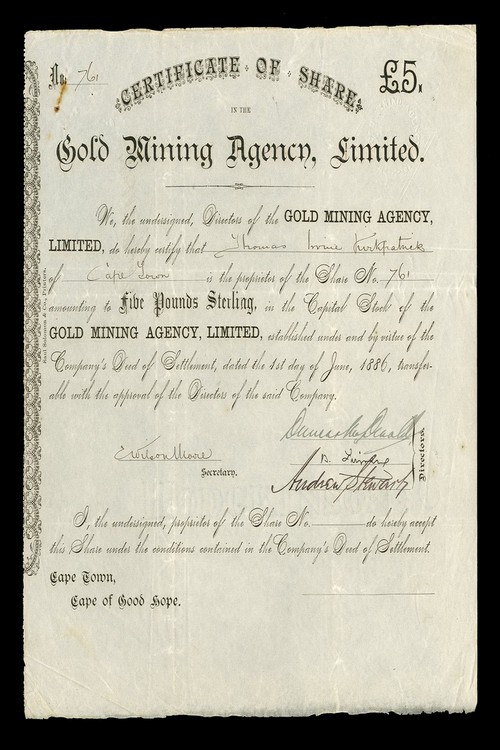 No. 761
CERTIFICATE OF SHARE
£5.
IN THE
Gold Mining Agency, Limited.
We, the undersigned, Directors of the GOLD MINING AGENCY,
LIMITED, do hereby certify that Thomas Irvine Kirkpatrick
of Cape Town is the proprietor of the Share No. 761
amounting to Five Pounds Sterling, in the Capital Stock of the
GOLD MINING AGENCY, LIMITED, established under and by virtue of the
Company's Deed of Settlement, dated the 1st day of June, 1886, transfer-
able with the approval of the Directors of the said Company.
Saul Solomon & Co., Printers.
Duncan
EWilson Moore
Secretary.
Andrew Stewart
Directors.
I, the undersigned, proprietor of the Share No. do hereby accept
this Share under the conditions contained in the Company's Deed of Settlement.
Cape Town,
Cape of Good Hope.